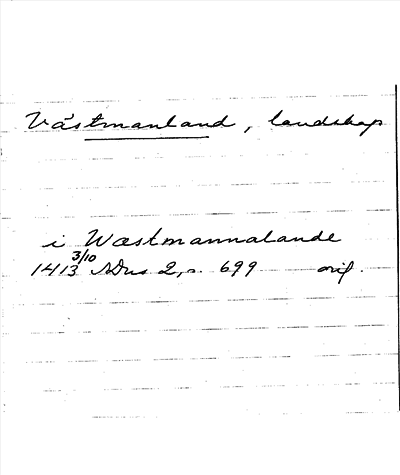 Västmanland, landskap
i Wæstmannalande
3/10
1413 SDns 2, s. 699 orig.